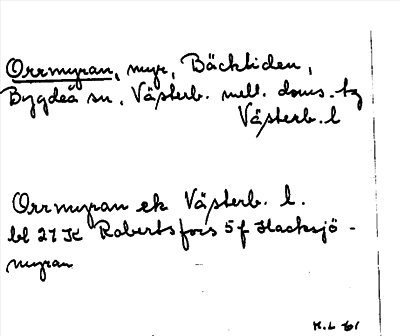 Orrmyran, myr, Bäckliden,
Bygdeå sn, Västerb. mell. doms. tg
Västerb. l
Orrmyran ek Västerb. l.
bl 27 K Robertsfors 5 f Hacksjö-
myran
K. L 61